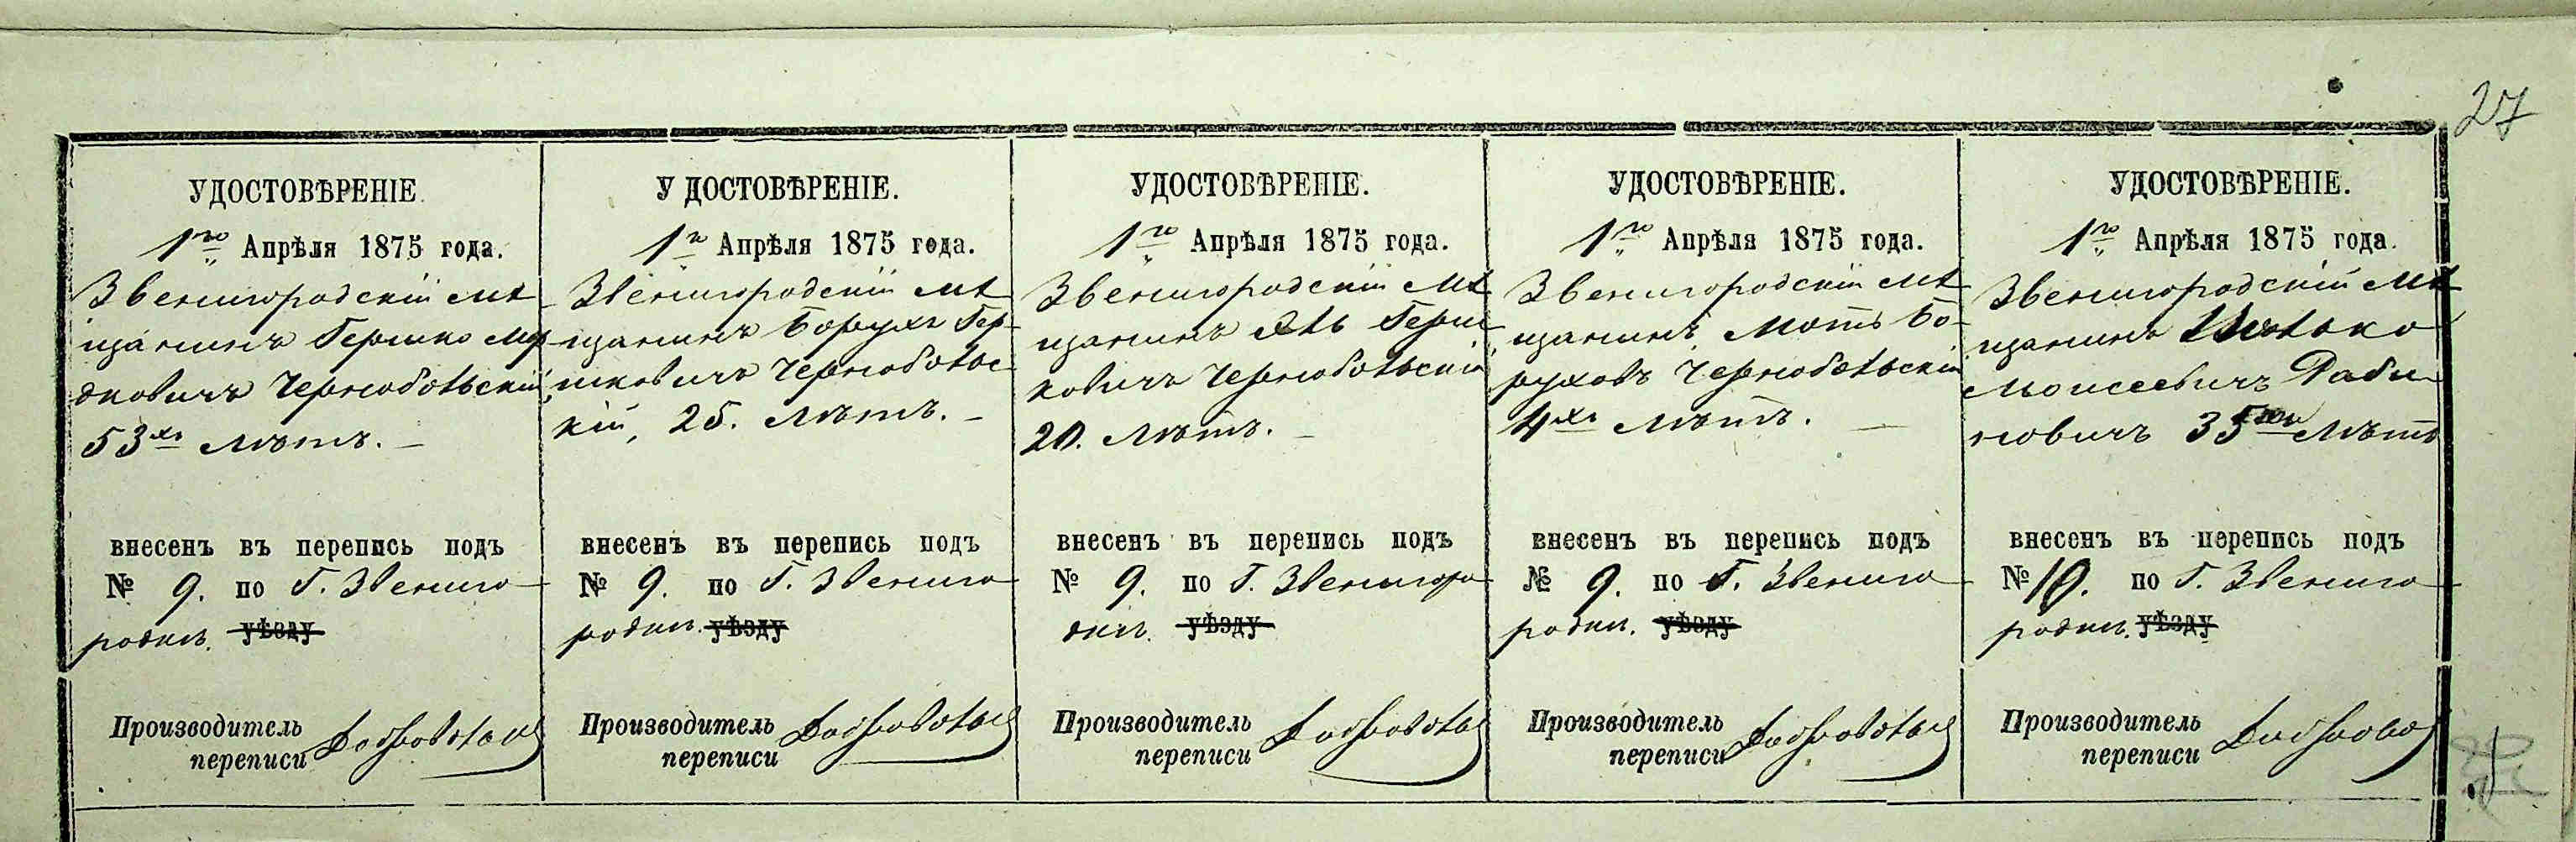 27
УДОСТОВѢРЕНІЕ.
1го Апрѣля 1875 года.
Звенигородскій мѣ
щанинъ Гершко Мор
дковичъ Чернобѣльскій
53хъ лѣтъ. —
внесенъ въ перепись подъ
№ 9. по Г. Звениго
родкѣ. уѣзду
Производитель
переписи
У ДОСТОВѢРЕНІЕ.
1го Апрѣля 1875 года.
Звенигородскій мѣ
щанинъ Борухъ Гер-
шковичъ Чернобѣльс
кій, 25. лѣтъ. —
внесенъ въ перепись подъ
№ 9. по Г. Звениго
родкѣ. уѣзду
Производитель
переписи
УДОСТОВѢРЕНІЕ.
1го Апрѣля 1875 года.
Звенигородскій мѣ
щанинъ Герш
ковичъ Чернобѣльскій
20. лѣтъ. —
внесенъ въ перепись подъ
№ 9. по Г. Звенигоро
дкѣ. уѣзду
Производитель
переписи
УДОСТОВѢРЕНІЕ.
1го Апрѣля 1875 года.
Звенигородскій мѣ
щанинъ, Мотъ Бо-
руховъ Чернобѣльскій
4хъ лѣтъ. —
внесенъ въ перепись подъ
№ 9. по Г. Звениго
родкѣ. уѣзду
Производитель
переписи
УДОСТОВѢРЕНІЕ.
1го Апрѣля 1875 года.
Звенигородскій мѣ
щанинъ
Моисеевичъ Раби
новичъ 35ти лѣтъ
внесенъ въ перепись подъ
№ 10. по Г. Звениго
родкѣ. уѣзду
Производитель
переписи